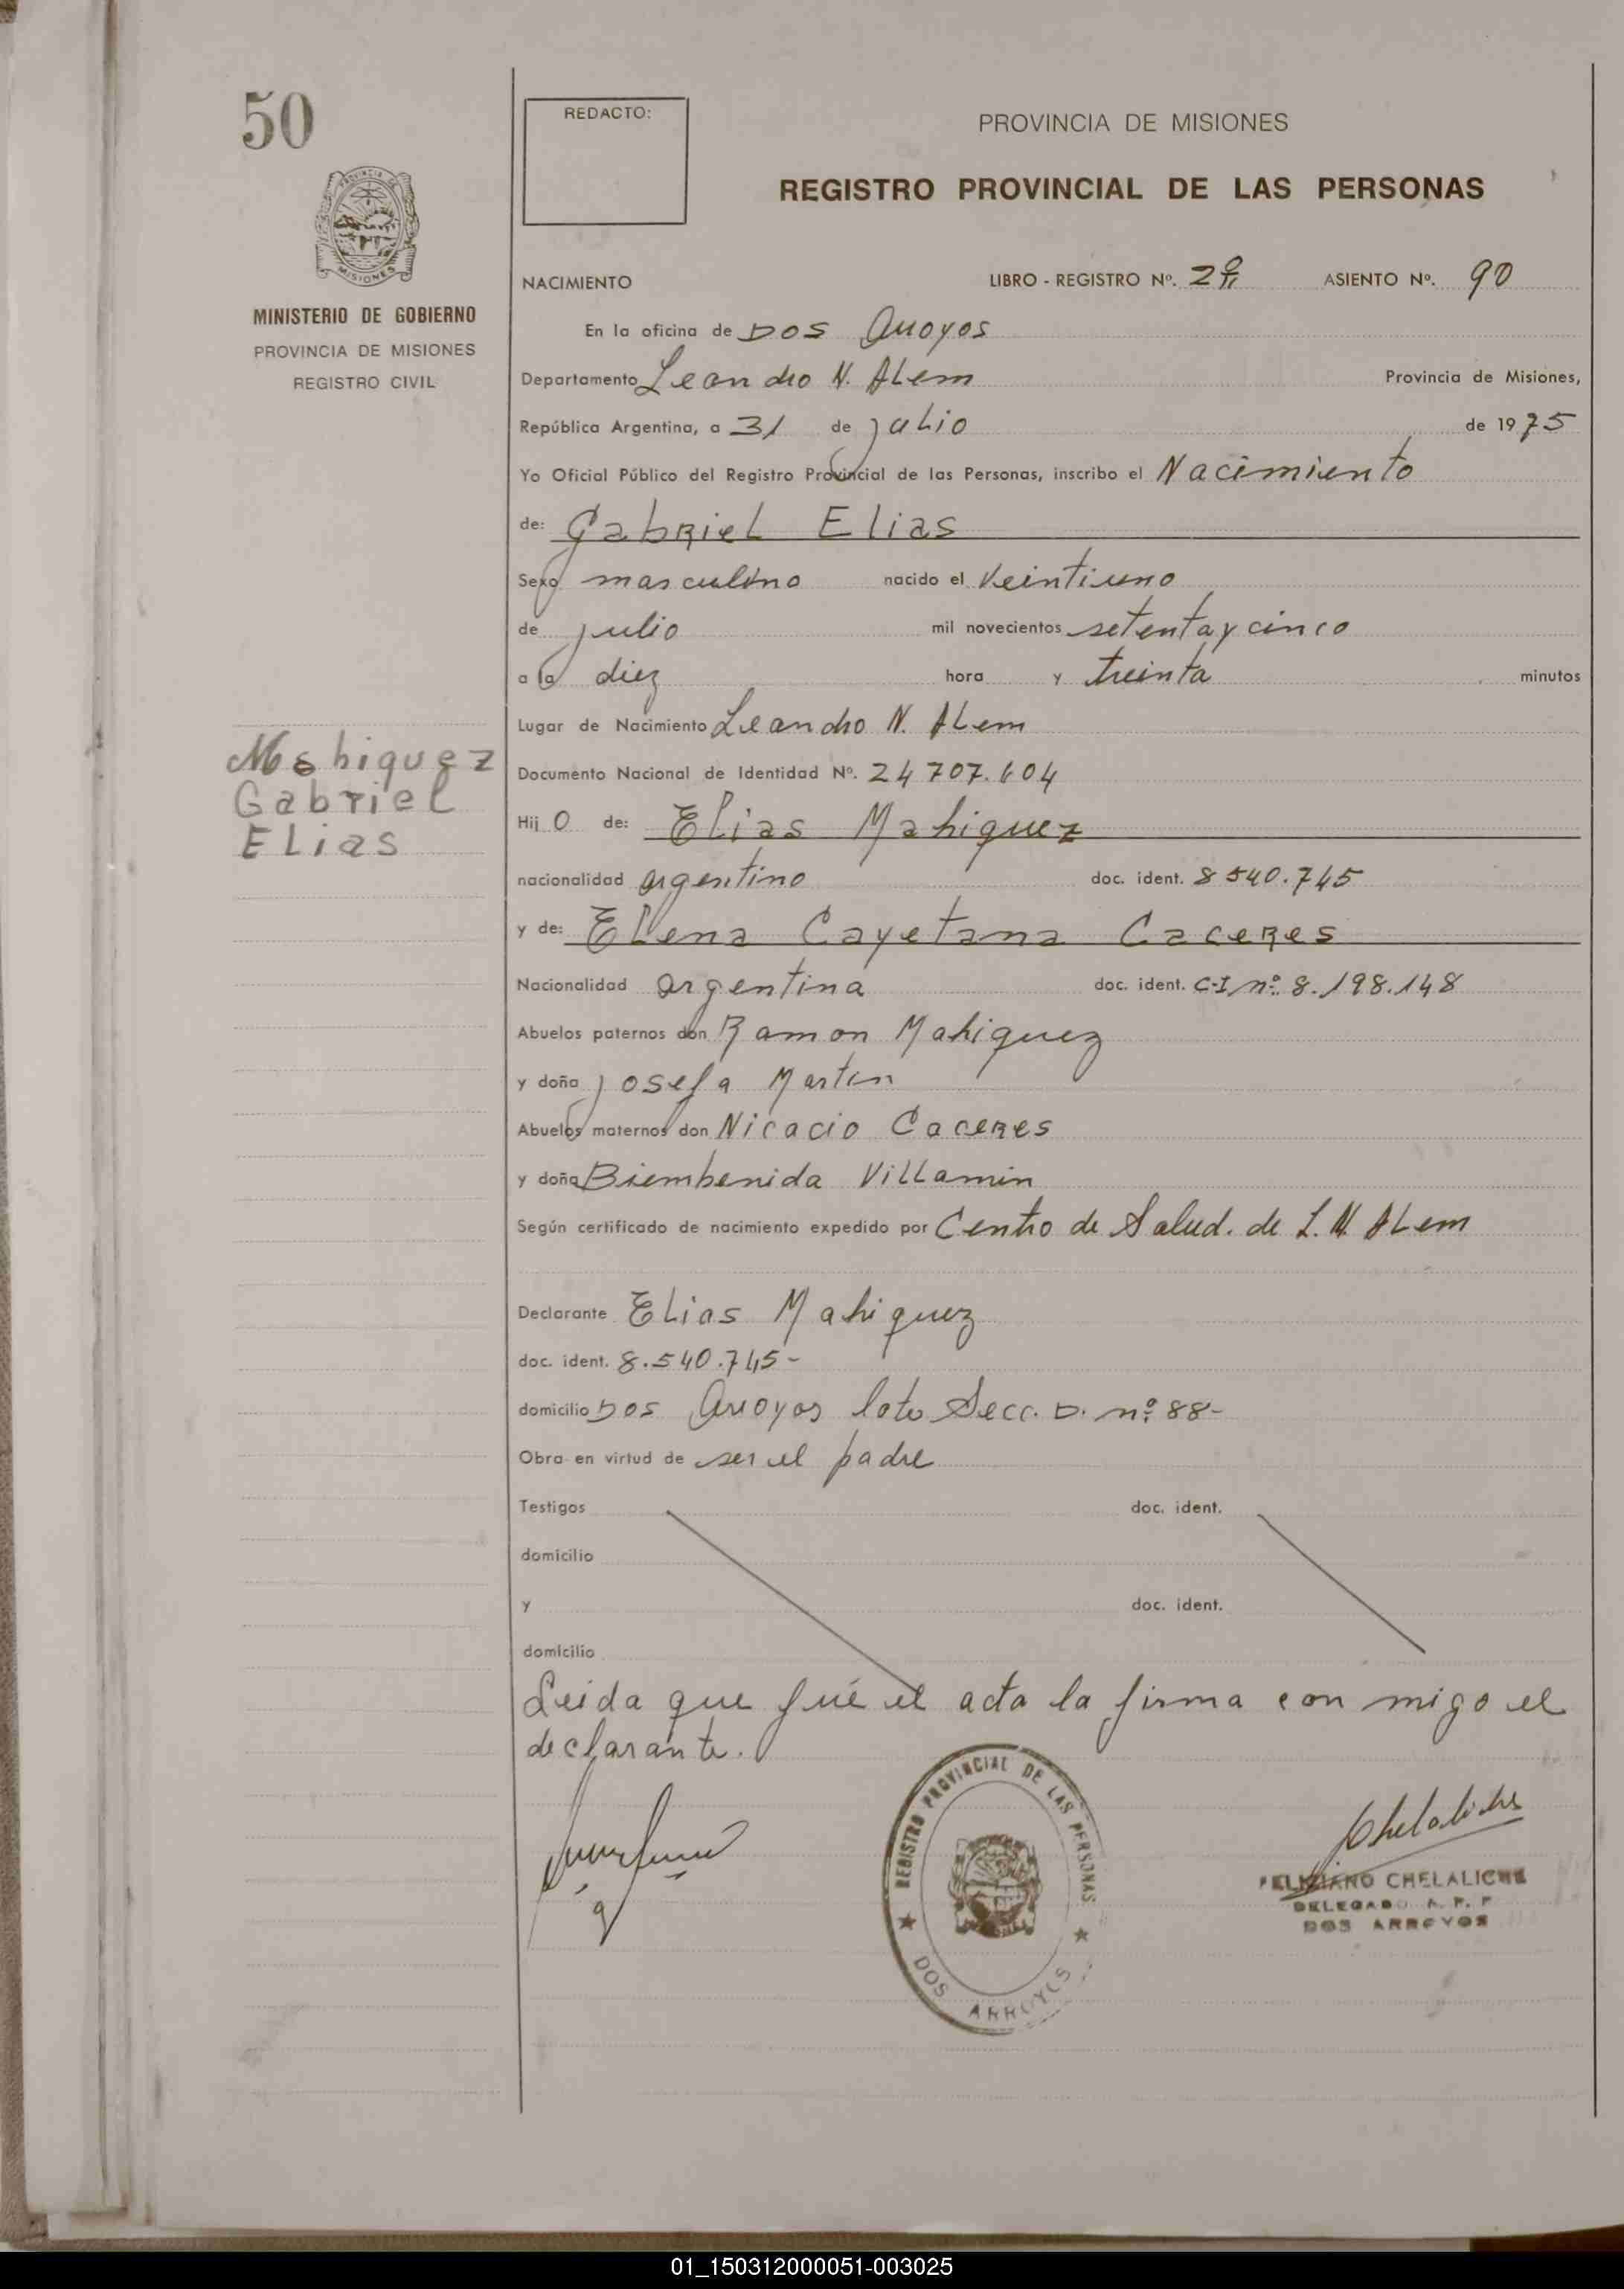 50
REDACTO:
PROVINCIA DE MISIONES
REGISTRO PROVINCIAL DE LAS PERSONAS
MISIONES
MINISTERIO DE GOBIERNO
PROVINCIA DE MISIONES
REGISTRO CIVIL
NACIMIENTO LIBRO - REGISTRO Nº. 2º ASIENTO Nº. 90
En la oficina de Dos Arroyos
Departamento Leandro N. Alem Provincia de Misiones,
República Argentina, a 31 de julio de 1975
Yo Oficial Público del Registro Provincial de las Personas, inscribo el Nacimiento
de: Gabriel Elias
Sexo masculino nacido el veintiuno
de julio mil novecientos setenta y cinco
a la diez hora y treinta minutos
Lugar de Nacimiento Leandro N. Alem
Mahiquez
Gabriel
Elias
Documento Nacional de Identidad Nº. 24 707.604
Hij o de: Elias Mahiquez
nacionalidad argentino doc. ident. 8 540.745
y de: Elena Cayetana Caceres
Nacionalidad argentina doc. ident. C-I nº. 8.198.148
Abuelos paternos don Ramon Mahiquez
y doña Josefa Martin
Abuelos maternos don Nicacio Caceres
y doña Biembenida Villamin
Según certificado de nacimiento expedido por Centro de Salud. de L. N. Alem
Declarante Elias Mahiquez
doc. ident. 8.540.745-
domicilio Dos Arroyos lote Secc. D. nº 88-
Obra en virtud de ser el padre
Testigos doc. ident.
domicilio
y doc. ident.
domicilio
Leida que fué el acta la firma con migo el
declarante.
REGISTRO PROVINCIAL DE LAS PERSONAS
DOS ARROYOS
Chelaliche
FELICIANO CHELALICHE
DELEGADO R. P. P
DOS ARROYOS
01_150312000051-003025